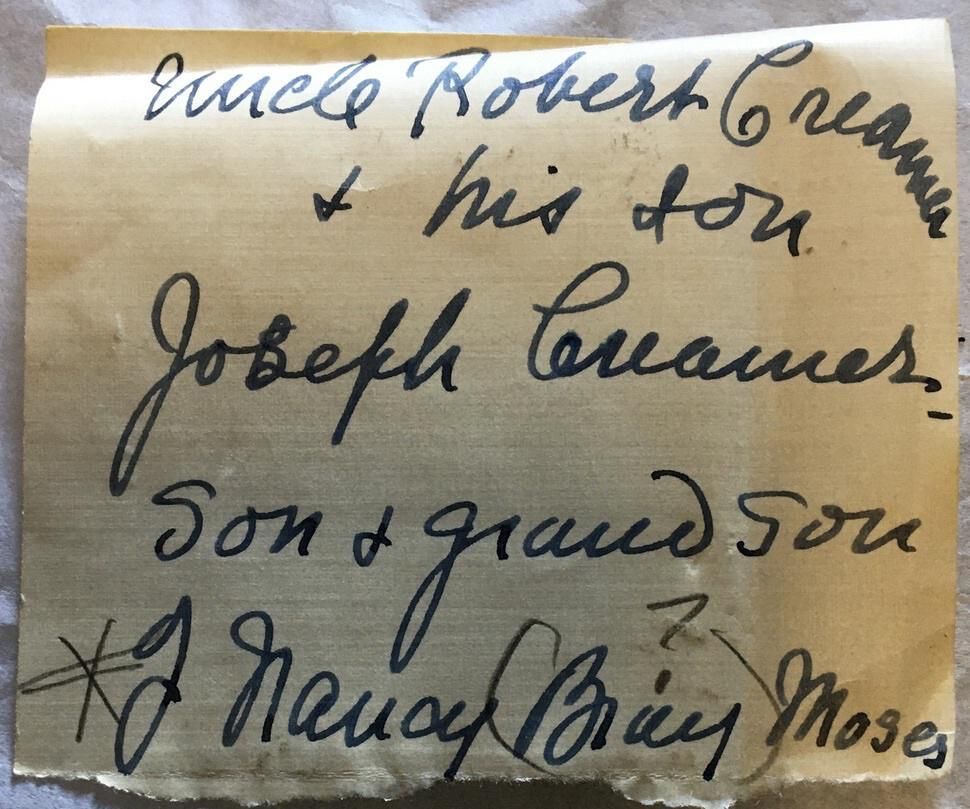 Uncle Robert Creamer
& his son
Joseph Creamer -
Son & grandson
?
* of Nancy (Bray) Moses